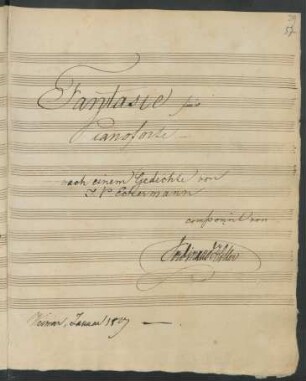 57
Fantasie für
Pianoforte –
nach einem Gedichte von
J. P. Eckermann
componirt von
Ferdinand Hiller
Weimar, Januar 1827 —